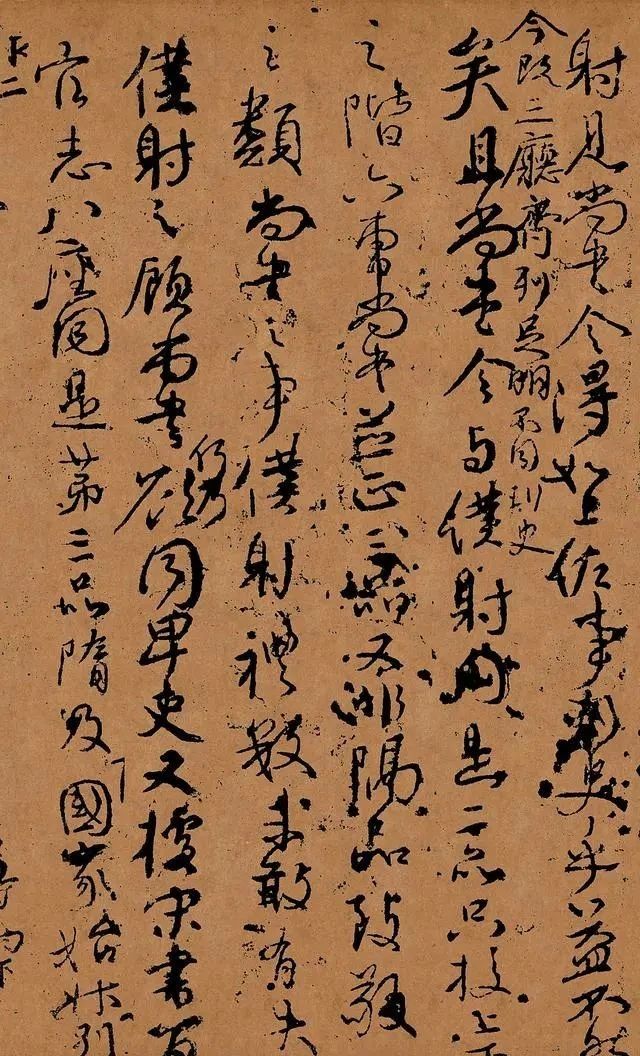 射見尚書令得如上佐事刺史乎益不然
今既三廳齊列足明不同刺史
矣且尚書令與僕射同是二品只校上下
之階六曹尚書並正三品又非隔品致敬
之類尚書之事僕射禮數未敢有失
僕射之顧尚書何乃欲同卑吏又據宋書百
官志八座同是第三品隋及國家始升別
作二